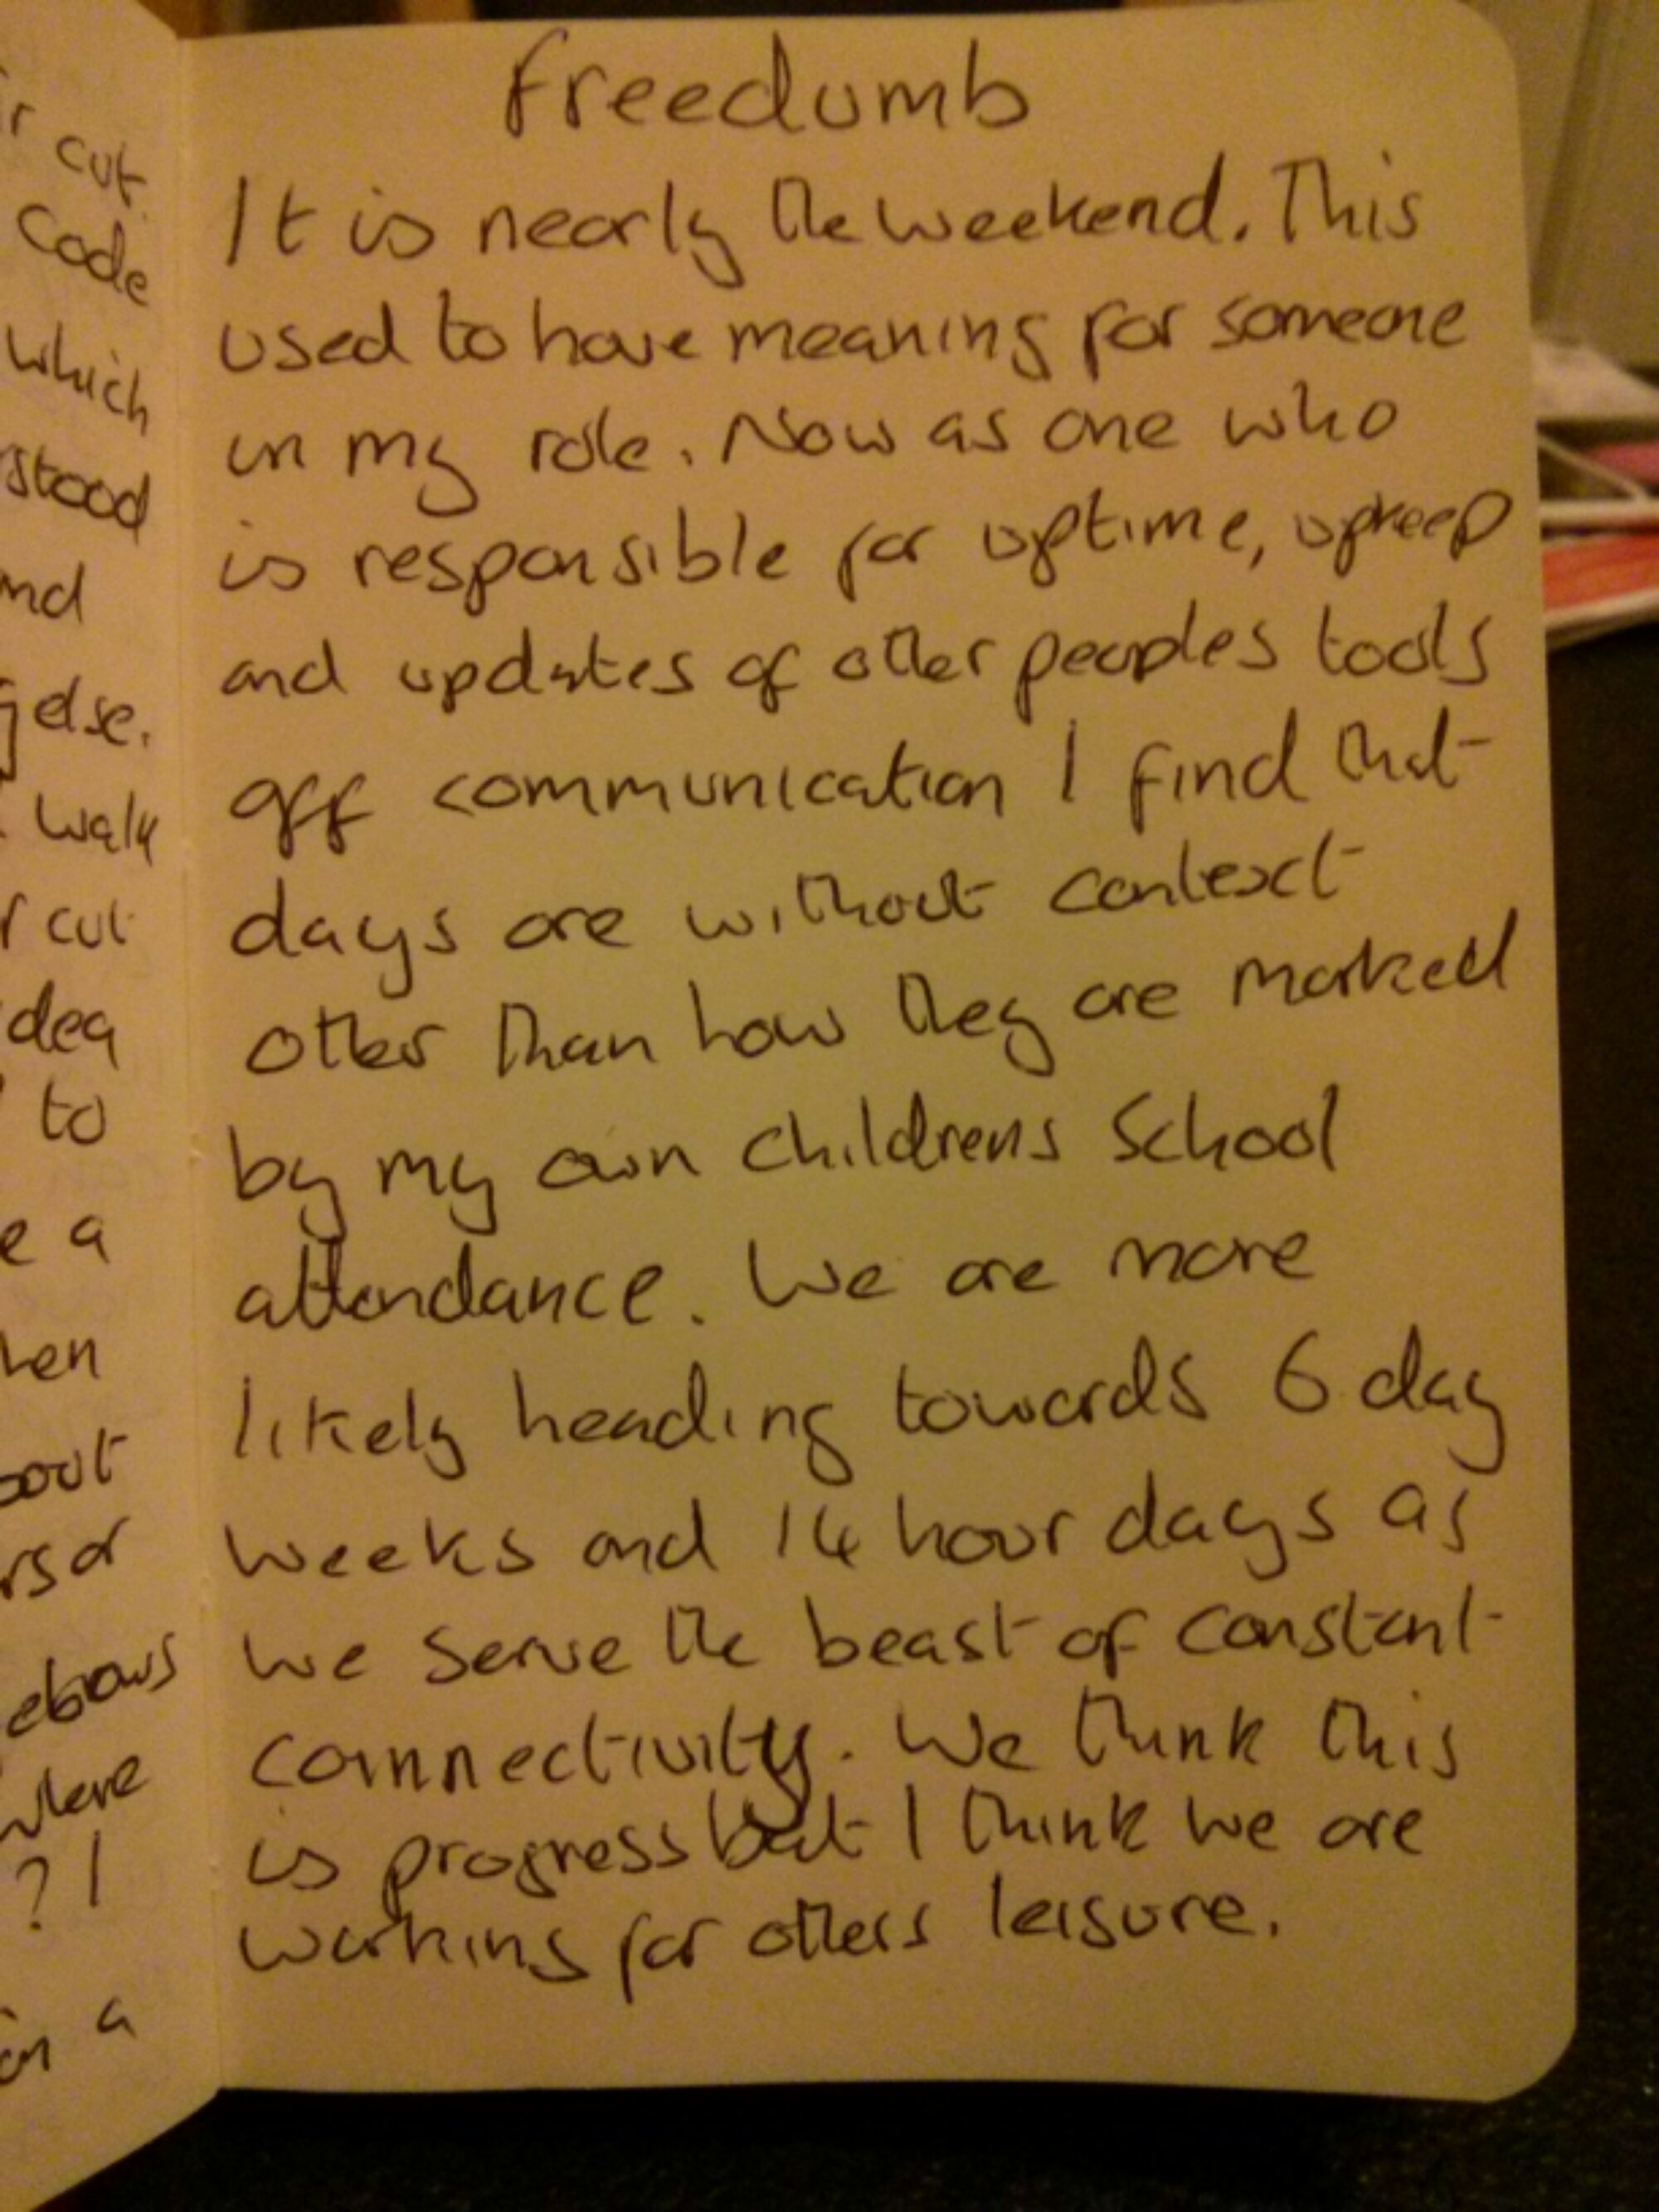 r cut
Code
which
stood
nd
g else.
walk
r cut
dea
to
e a
hen
bout
rs or
ebrows
where
? I
on a
Freedumb
It is nearly the weekend. This
used to have meaning for someone
in my role. Now as one who
is responsible for uptime, upkeep
and updates of other peoples tools
off communication I find that
days are without context
other than how they are marked
by my own childrens School
attendance. We are more
likely heading towards 6 day
weeks and 14 hour days as
we serve the beast of constant
connectivity. We think this
is progress but I think we are
working for others leisure.